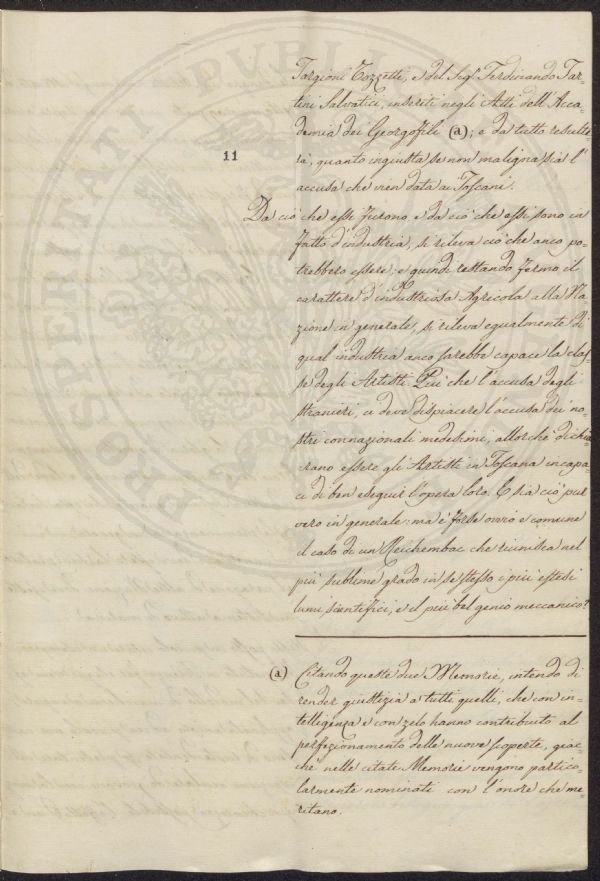 Targioni Tozzetti, e del Sig.r Ferdinando Tar-
tini Salvatici, inseriti negli Atti dell'Acca-
demia dei Georgofili (a); e da tutto resulte-
11
rà, quanto ingiusta se non maligna sia l'
accusa che vien data ai Toscani.
Da ciò che essi furono, e da ciò che essi sono in
fatto d'industria, si rileva ciò che anco po-
trebbero essere; e quindi restando fermo il
carattere d'industriosa Agricola alla Na-
zione in generale, si rileva egualmente di
qual industria anco sarebbe capace la clas-
se degli Artisti. Più che l'accusa degli
stranieri, ci deve dispiacere l'accusa dei no-
stri connazionali medesimi, allorchè dichia-
rano essere gli Artisti in Toscana incapa-
ci di ben eseguir l'opera loro. E sia ciò pur
vero in generale: ma è forse ovvio e comune
il caso di un Reichembac che riunisca nel
più sublime grado in se stesso i più estesi
lumi scientifici, e il più bel genio meccanico?
(a) Citando queste due Memorie, intendo di
render giustizia a tutti quelli, che con in-
telligenza e con zelo hanno contribuito al
perfezionamento delle nuove scoperte, giac-
chè nelle citate Memorie vengono partico-
larmente nominati con l'onore che me-
ritano.
PROSPERITATI PVBLI